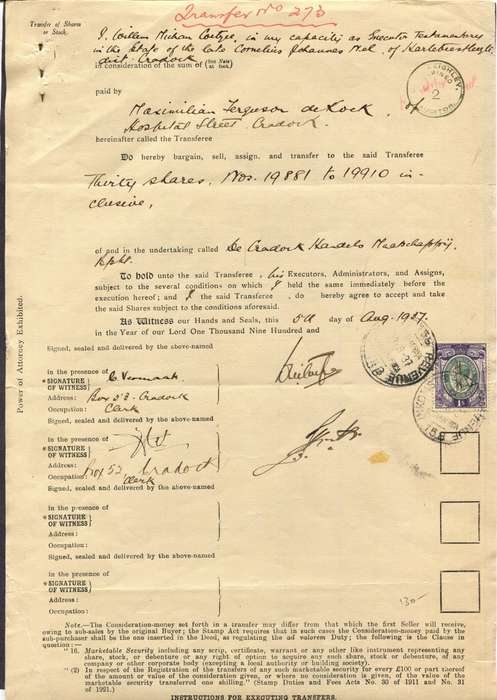 Transfer No 273
Transfer of Shares
or Stock.
I, Willem Michau Coetzee, in my capacity as Executor Testamentary
in the Estate of the late Cornelius Johannes Mel, of
dist. Cradock
in consideration of the sum of (See Note at foot.)
2
paid by
Maximilian Ferguson de Kock, of
Hospital Street Cradock.
hereinafter called the Transferee
Do hereby bargain, sell, assign, and transfer to the said Transferee
Thirty shares, Nos. 19881 to 19910 in-
clusive,
of and in the undertaking called De Cradock Handels Maatschappij,
Bpkt.
To hold unto the said Transferee, his Executors, Administrators, and Assigns,
subject to the several conditions on which I held the same immediately before the
execution hereof; and I the said Transferee, do hereby agree to accept and take
the said Shares subject to the conditions aforesaid.
As Witness our Hands and Seals, this day of Aug. 1927.
in the Year of our Lord One Thousand Nine Hundred and
Power of Attorney Exhibited.
Signed, sealed and delivered by the above-named
in the presence of C. Vermaak
*SIGNATURE OF WITNESS
Address: Box 52. Cradock
Occupation: Clerk
REVENUE
Signed, sealed and delivered by the above-named
in the presence of
*SIGNATURE OF WITNESS
Address: Box 52 Cradock
Occupation: Clerk
Signed, sealed and delivered by the above-named
in the presence of
*SIGNATURE OF WITNESS
Address:
Occupation:
Signed, sealed and delivered by the above-named
in the presence of
*SIGNATURE OF WITNESS
Address:
Occupation:
130-
Note.—The Consideration-money set forth in a transfer may differ from that which the first Seller will receive,
owing to sub-sales by the original Buyer; the Stamp Act requires that in such cases the Consideration-money paid by the
sub-purchaser shall be the one inserted in the Deed, as regulating the ad valorem Duty; the following is the Clause in
question:—
"16. Marketable Security including any scrip, certificate, warrant or any other like instrument representing any
share, stock, or debenture or any right of option to acquire any such share, stock or debenture, of any
company or other corporate body (excepting a local authority or building society).
(2) In respect of the Registration of the transfer of any such marketable security for every £100 or part thereof
of the amount or value of the consideration given, or where no consideration is given, of the value of the
marketable security transferred one shilling." (Stamp Duties and Fees Acts No. 30 of 1911 and No. 31
of 1921.)
INSTRUCTIONS FOR EXECUTING TRANSFERS.